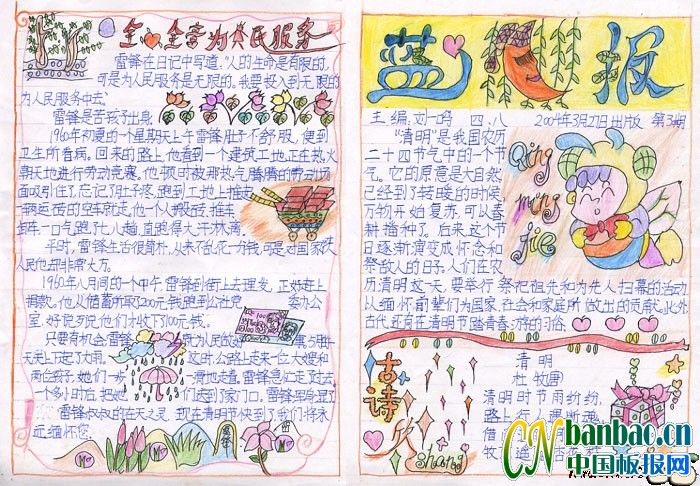 全心全意为人民服务
雷锋在日记中写道，"人的生命是有限的，
可是为人民服务是无限的。我要投入到无限的
为人民服务中去。
雷锋是苦孩子出身
1960年初夏的一个星期天上午雷锋肚子不舒服，便到
卫生所看病。回来的路上，他看到一个建筑工地正在热火
朝天地进行劳动竞赛。他顿时被那热气腾腾的劳动场
面吸引住了，忘记了肚子疼，跑到工地上推起
一辆运砖的空车就走，他一个人搬砖、推车
一口气跑了七八趟，直跑得大汗淋漓
平时，雷锋生活很简朴，从来不乱花一分钱，可是对国家
人民他却非常大方。
1960年八月间的一个中午，雷锋到街上去理发，正好赶上
捐款。他从储蓄所取200元钱跑到公社党委办公
室，好说歹说他们才收下100元钱。
只要有机会雷锋
天天上下起了大雨，这时公路上走来一位大嫂和
两个孩子，她们一步一滑地走着，雷锋急忙走了过去
一个多小时后把她们送到了家门口。雷锋浑身湿了
雷锋叔叔的在天之灵，现在清明节快到了我们将永
远缅怀您。
蓝月报
主编：刘一鸣 四、八 2009年3月27日出版 第3期
"清明"是我国农历
二十四节气中的一个节
气。它的原意是大自然
已经到了转暖的时候
万物开始复苏，可以春
耕播种了。后来，这个节
日逐渐演变成怀念和
祭故人的日子。人们在农
历清明这一天，要举行祭祀祖先和为先人扫幕的活动
以缅怀前辈们为国家、社会和家庭所做出的贡献。此外
古代，还有在清明节踏青春游的习俗。
Qing
ming
jie
古诗
欣
Shang
清明
杜牧
清明时节雨纷纷，
路上行人
借
牧
CN banbao.cn
中国板报网